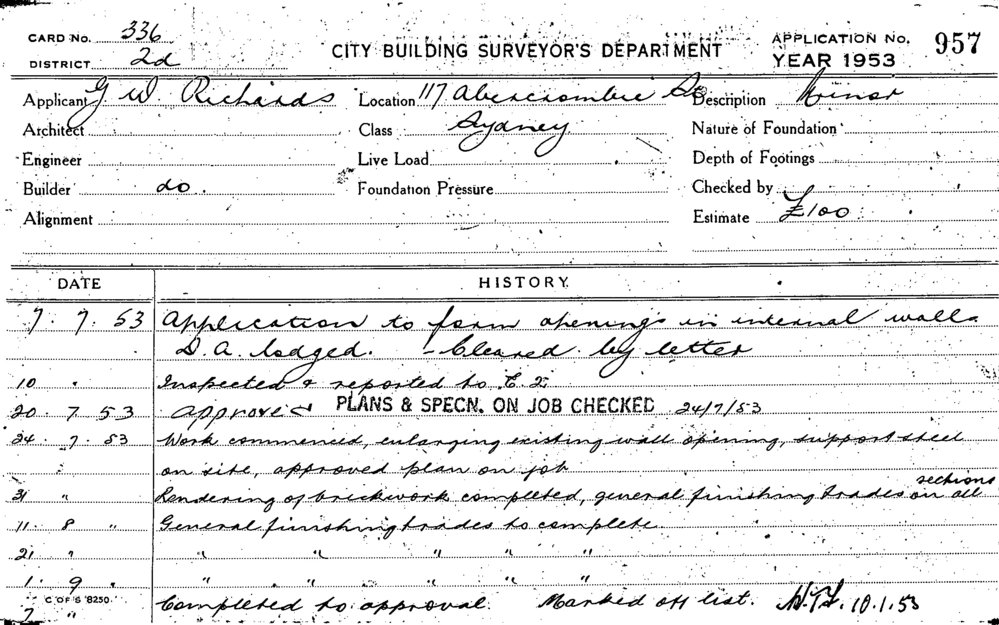 CARD No. 336
DISTRICT 2d
CITY BUILDING SURVEYOR'S DEPARTMENT
APPLICATION No. 957
YEAR 1953
Applicant G W. Richards Location 117 Abercrombie St Description Minor
Architect Class Sydney Nature of Foundation
Engineer Live Load Depth of Footings
Builder do. Foundation Pressure Checked by
Alignment Estimate £100
DATE HISTORY.
7. 7. 53 Application to form openings in internal walls
D.A. lodged. - Cleared by letter
10 " Inspected & reported to
20. 7 53 Approved PLANS & SPECN. ON JOB CHECKED 24/7/53
24. 7. 53 Work commenced, enlarging existing wall opening, support steel
on site, approved plan on job
sections
31 " Rendering of brickwork completed, general finishing trades on all
11. 8 " General finishing trades to complete.
21 " " " " " "
1. 9 " " " " " "
C OF S 8250.
7 " Completed to approval. Marked off list. 10.1.53